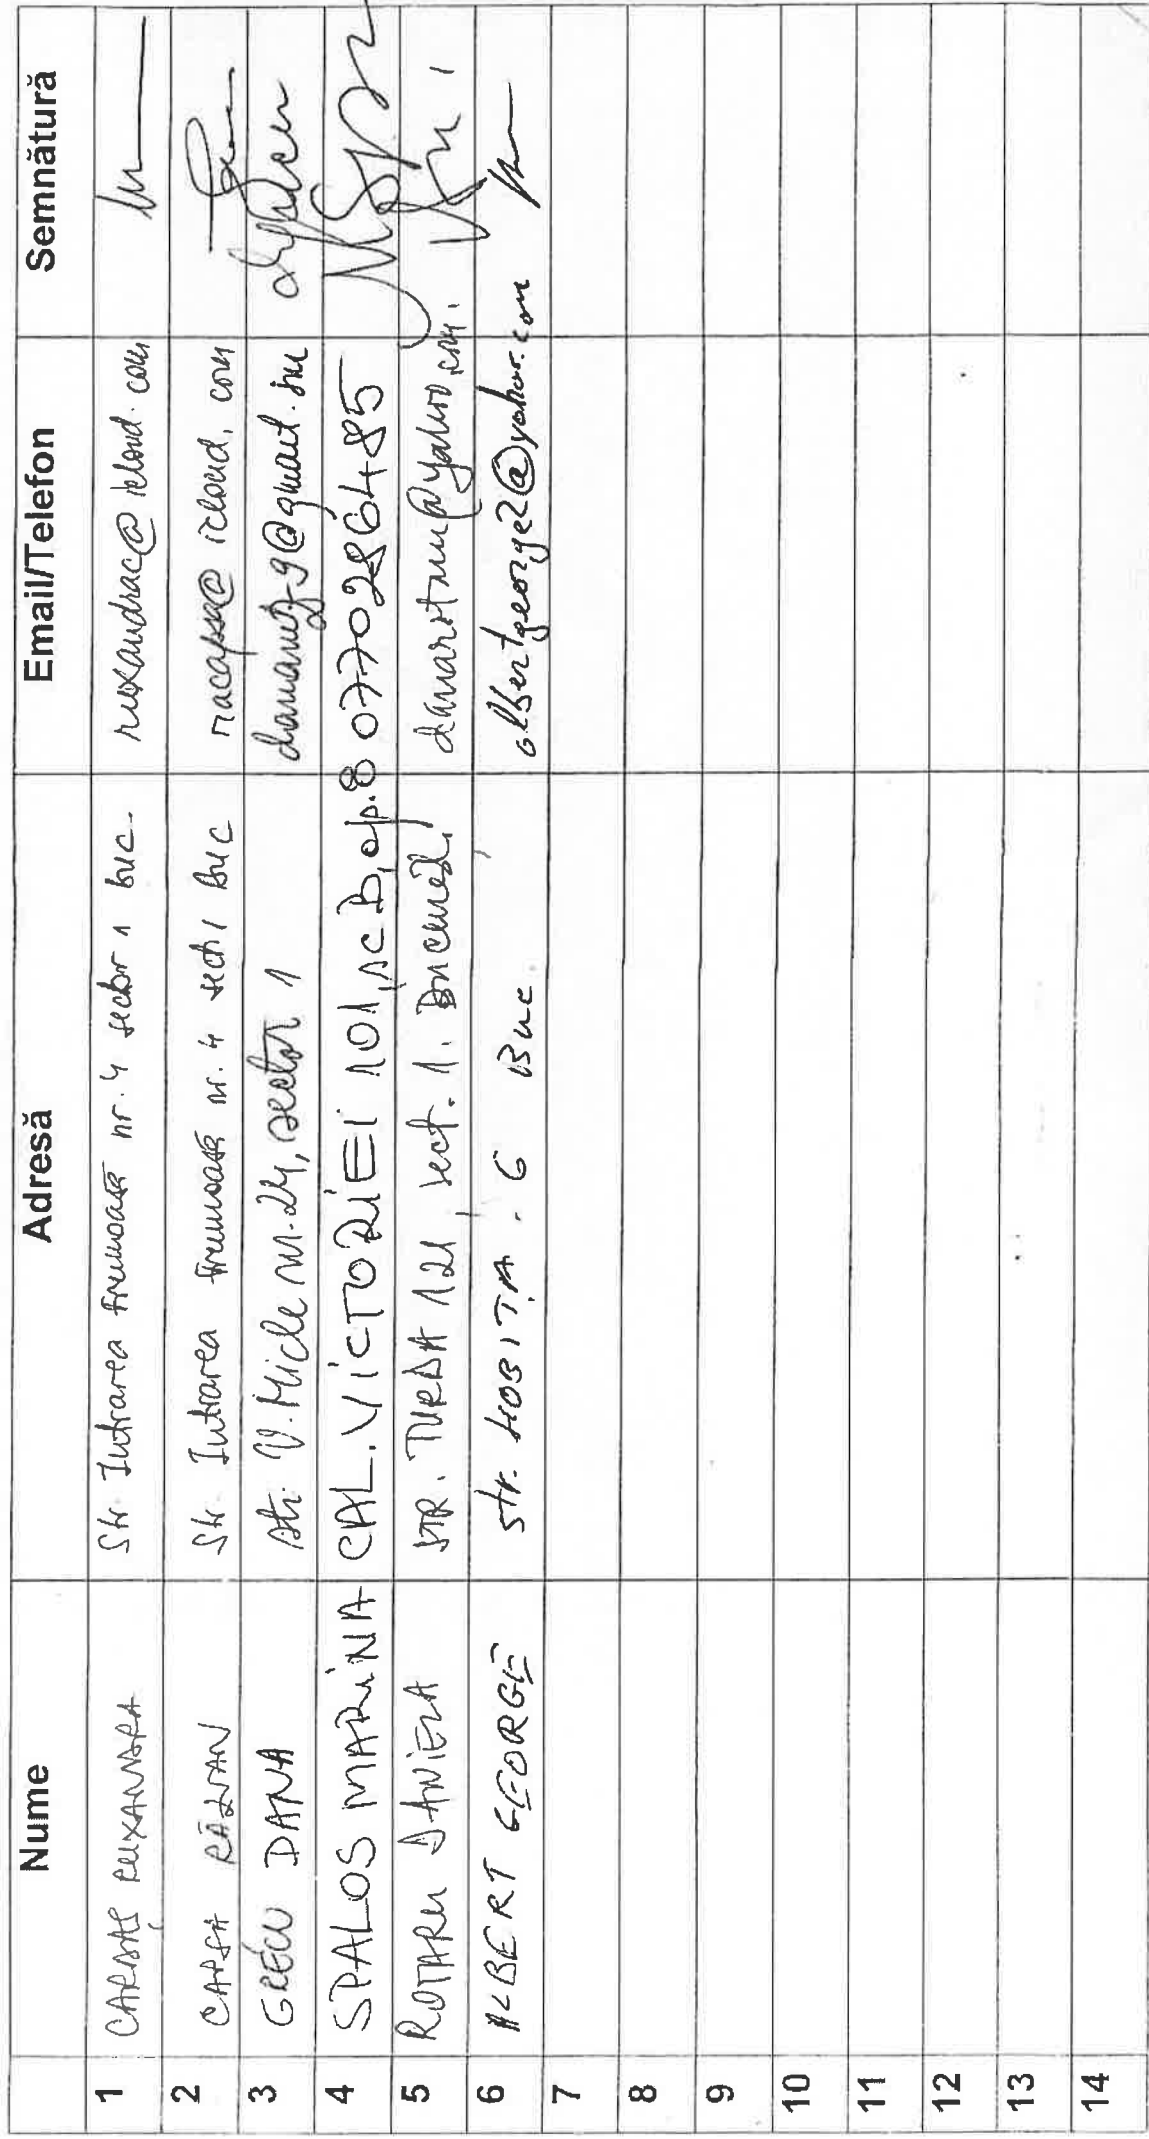 Nume Adresă Email/Telefon Semnătură
1 CARDAȘ RUXANDRA Str. Intrarea Frumoasă nr. 4 sector 1 buc. ruxandrac@icloud.com
2 CAPȘA RĂZVAN Str. Intrarea Frumoasă nr. 4 sect 1 Buc racapsa@icloud.com
3 GRECU DANA str. V. Micle nr. 24, sector 1
4 SPALOS MARINA CAL. VICTORIEI 101, sc B, ap. 8 0770286485
5 ROTARU DANIELA STR. TURDA 121, sect. 1. București
6 ALBERT GEORGE str. HOBITA . 6 Buc. albertgeorge2@yahoo.com
7
8
9
10
11
12
13
14